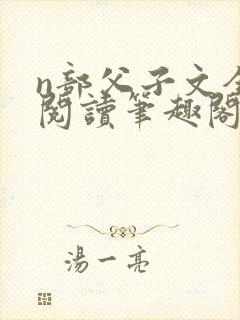 n部父子文全
閱讀筆趣閣
湯一亮